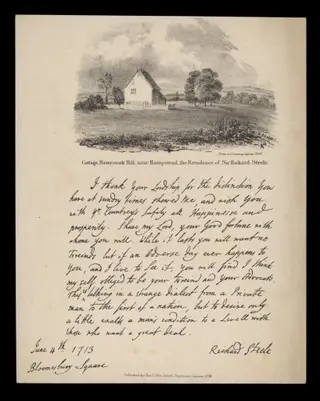 Cottage, Haverstock Hill, near Hampstead, the Residence of Sir Richard Steele.
I thank Your Lordship for the distinction You
have at sundry times showed Me, and wish You
with yr Countrey's Safety all Happinesse and
prosperity. Share my Lord, Your Good fortune with
whome you will. While it lasts you will want no
Friends but if an adverse day ever happens to
You, and I live to See it, you will find I think
my self obliged to be your Friend and Your Advocate.
This is talking in a strange Dialect from a Private
man to the first of a nation, but to desire only
a little exalts a man's condition to a Levell with
those who want a great deal.
June 4th 1713
Richard Steele
Bloomsbury-Square